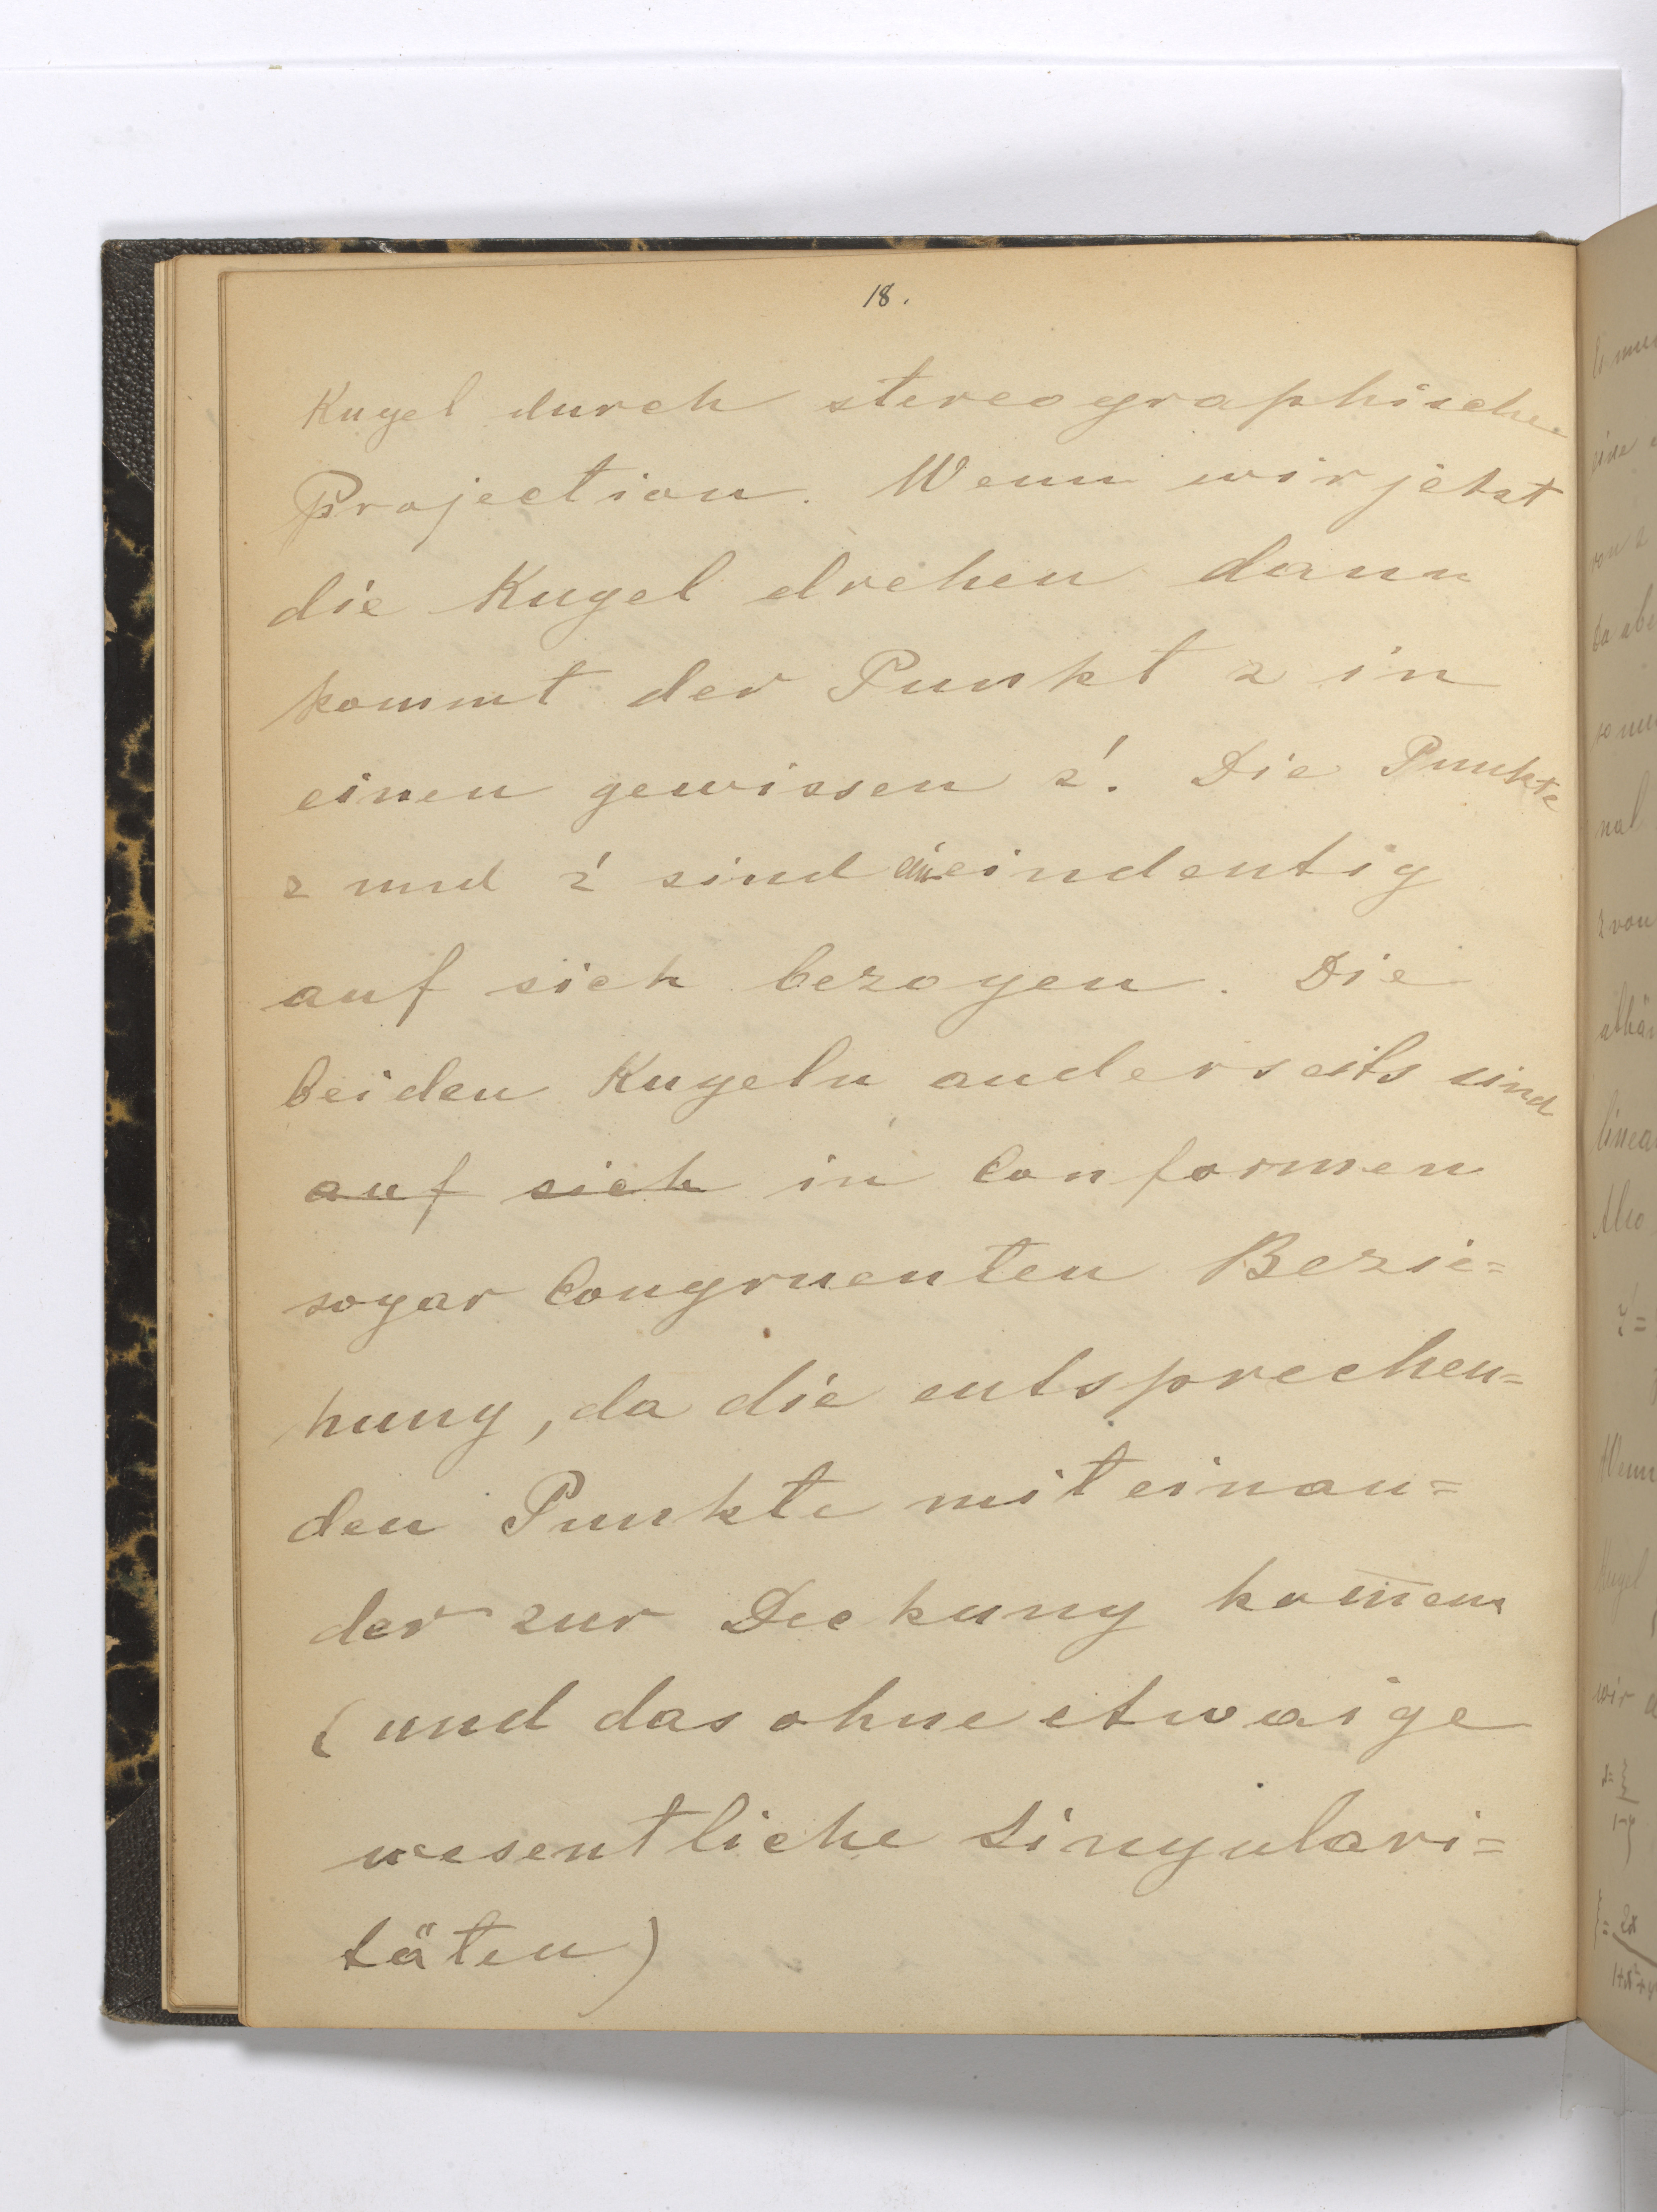 18.
Kugel durch stereographische
Projection. Wenn wir jetzt
die Kugel drehen dann
kommt der Punkt z in
einen gewissen z'. Die Punkte
z und z' sind eineindeutig
auf sich bezogen. Die
beiden Kugeln anderseits sind
auf sich in Conformen
sogar Congruenten Bezie=
hung, da die entsprechen=
den Punkte mit einan=
der zur Deckung kom̅en
(und das ohne etwaige
wesentliche Singulari=
täten)